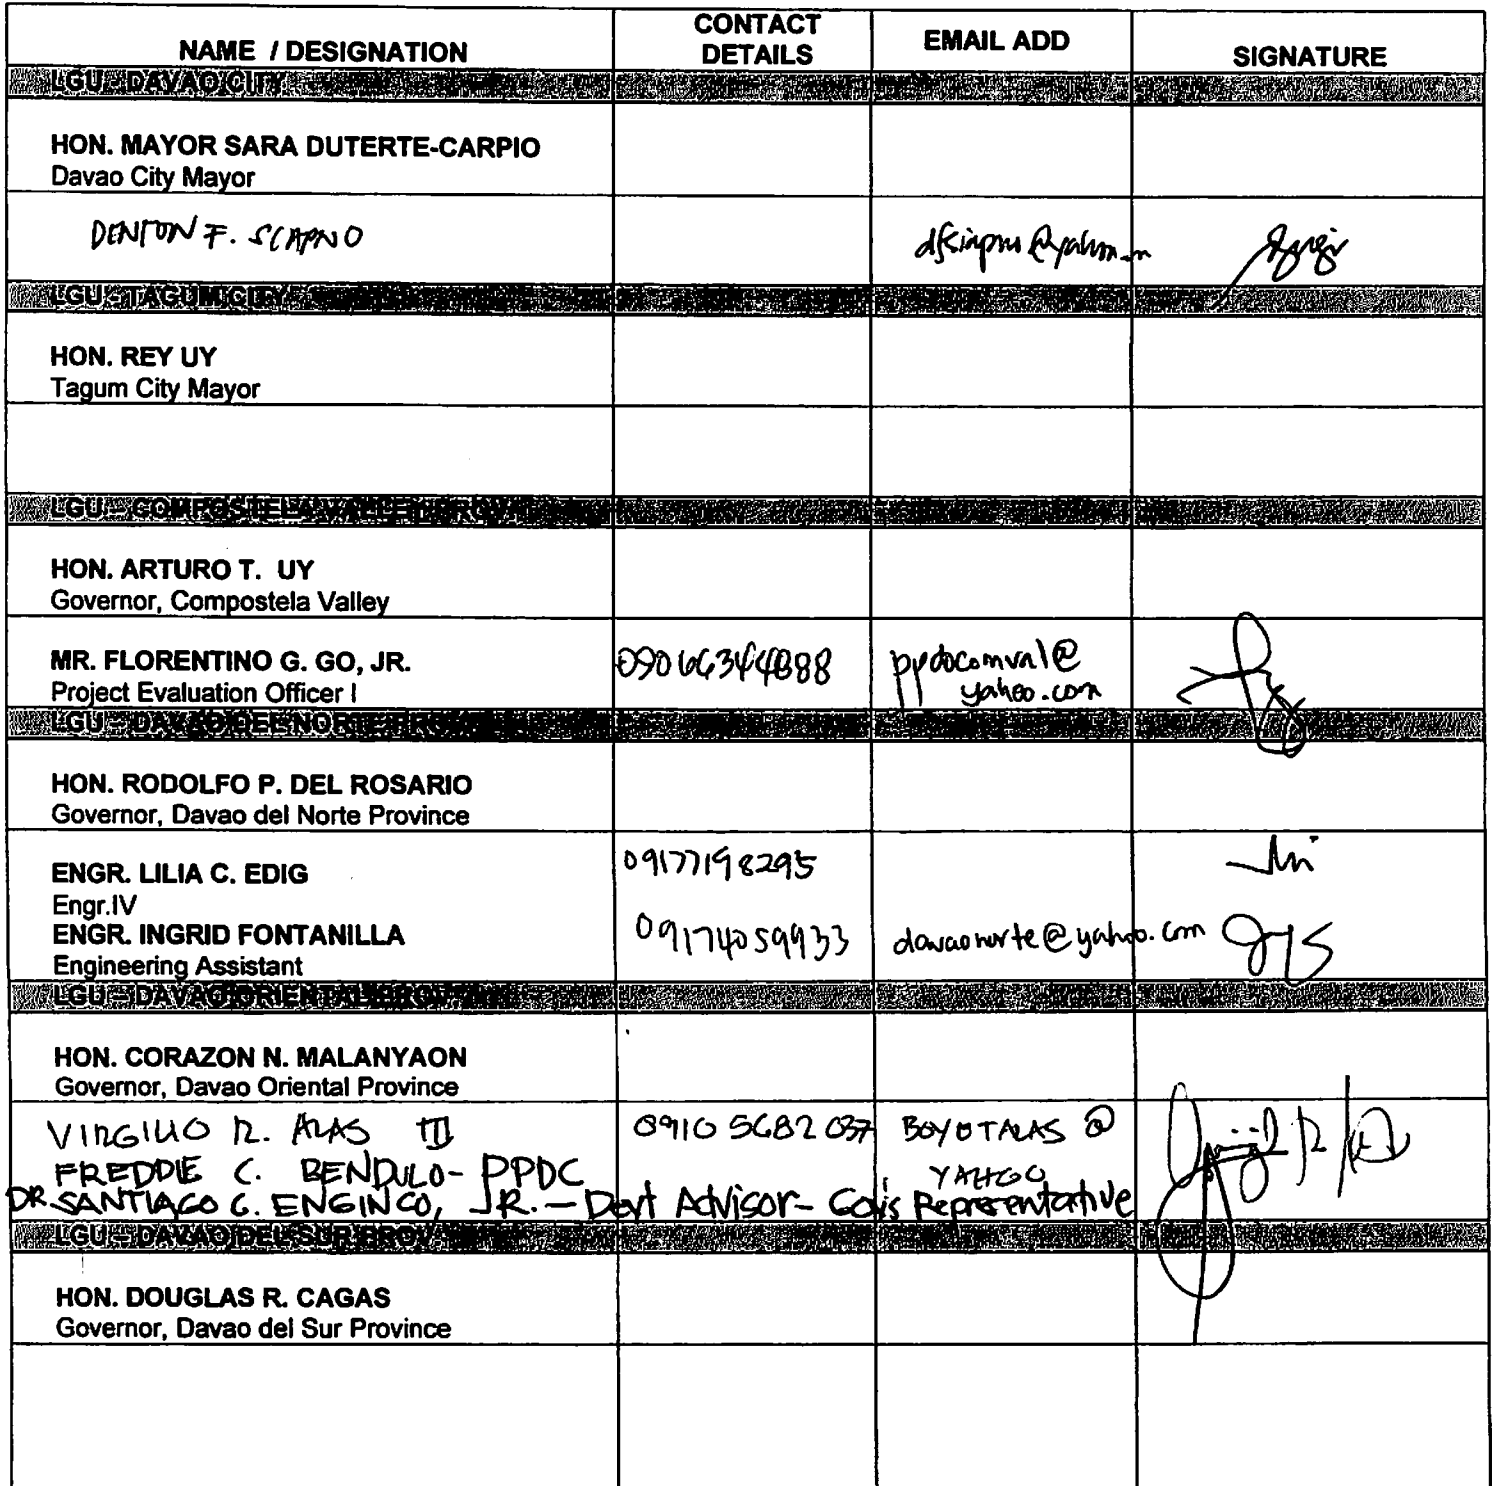 NAME / DESIGNATION
CONTACT
DETAILS
EMAIL ADD
SIGNATURE
LGU - DAVAO CITY
HON. MAYOR SARA DUTERTE-CARPIO
Davao City Mayor
F.
LGU - TAGUM CITY
HON. REY UY
Tagum City Mayor
LGU - COMPOSTELA VALLEY PROV
HON. ARTURO T. UY
Governor, Compostela Valley
MR. FLORENTINO G. GO, JR.
Project Evaluation Officer I
ppdocomval@
yahoo.com
LGU - DAVAO DEL NORTE PROV
HON. RODOLFO P. DEL ROSARIO
Governor, Davao del Norte Province
ENGR. LILIA C. EDIG
Engr.IV
09177198295
ENGR. INGRID FONTANILLA
Engineering Assistant
09174059933
davaonorte@yahoo.com
LGU - DAVAO ORIENTAL PROV
HON. CORAZON N. MALANYAON
Governor, Davao Oriental Province
VIRGILIO R. ALAS III
09105682037
BOYOTALAS @
YAHOO
FREDDIE C. BENDULO- PPDC
DR. SANTIAGO C. ENGINCO, JR. - Devt Advisor- Gov's Representative
LGU - DAVAO DEL SUR PROV
HON. DOUGLAS R. CAGAS
Governor, Davao del Sur Province